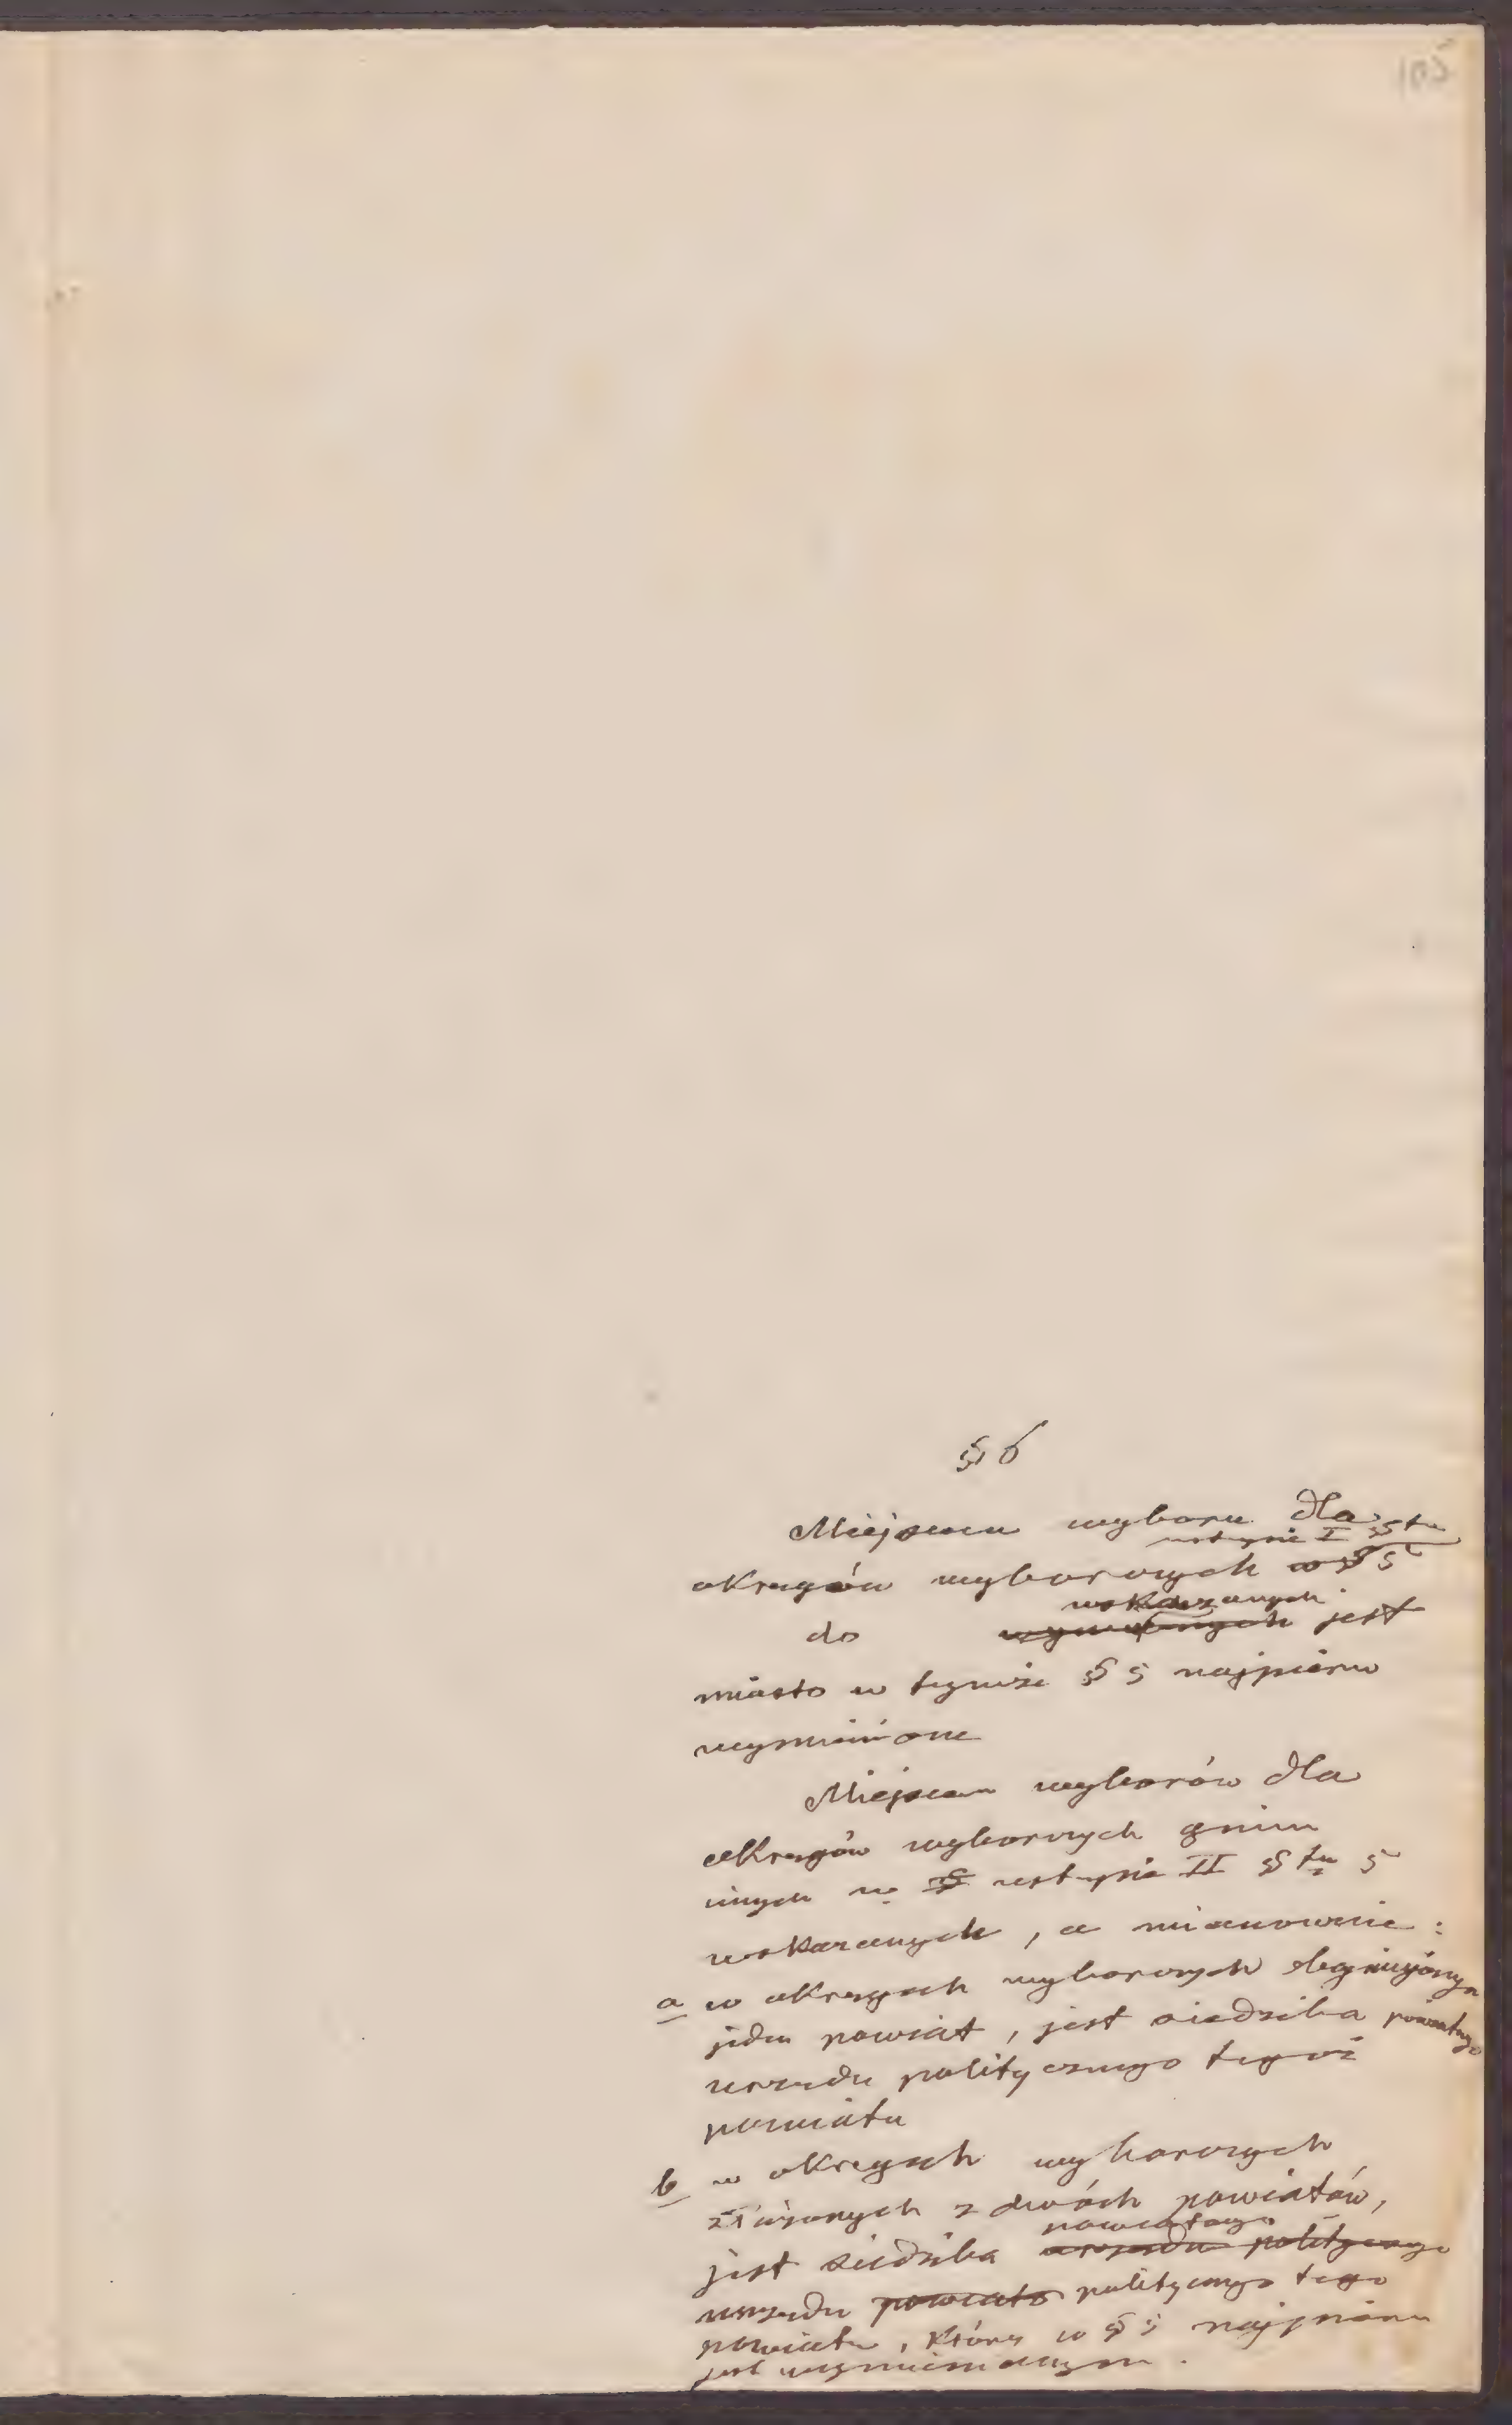 105
§ 6
Miejscem wyboru dla
ustępie I §tu
okręgów wyborowych w § 5
wskazanych
do wymienionych jest
miasto w tymże § 5 najpierw
wymienione
Miejscem wyborów dla
okręgów wyborowych gmin
innych w § ustępie II § tu 5
wskazanych, a mianowicie:
a w okręgach wyborowych obejmujących
jeden powiat, jest siedziba powiatowego
urzędu politycznego tegoż
powiatu
b w okręgach wyborowych
złożonych z dwóch powiatów,
powiatowego
jest siedziba urzędu politycznego
urzędu powiato politycznego tego
powiatu, który w § 5 najpierw
jest wymienionym.